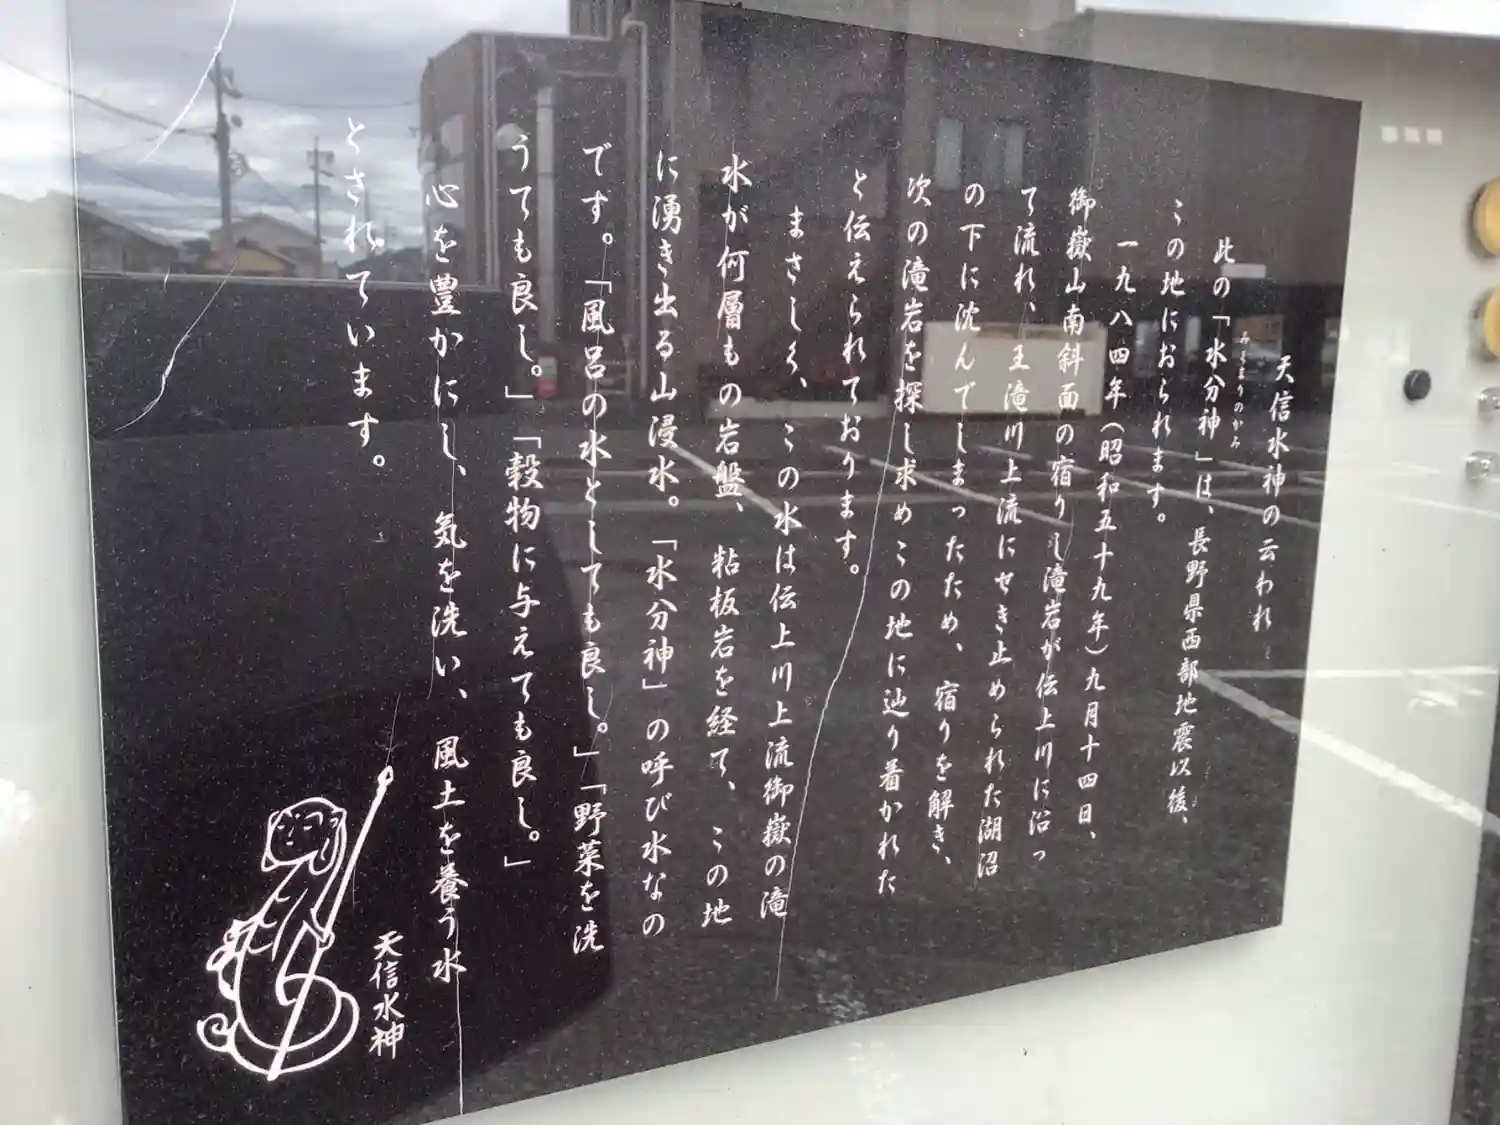 天信水神の云われ
此の「水分神」は、長野県西部地震以後、
みくまりのかみ
この地におられます。
一九八四年(昭和五十九年)九月十四日、
御嶽山南斜面の宿りし滝岩が伝上川に沿っ
て流れ、王滝川上流にせき止められた湖沼
の下に沈んでしまったため、宿りを解き、
次の滝岩を探し求めこの地に辿り着かれた
と伝えられております。
まさしく、この水は伝上川上流御嶽の滝
水が何層もの岩盤、粘板岩を経て、この地
に湧き出る山浸水。「水分神」の呼び水なの
です。「風呂の水としても良し。」「野菜を洗
うても良し。」「穀物に与えても良し。」
心を豊かにし、気を洗い、風土を養う水
とされています。
天信水神